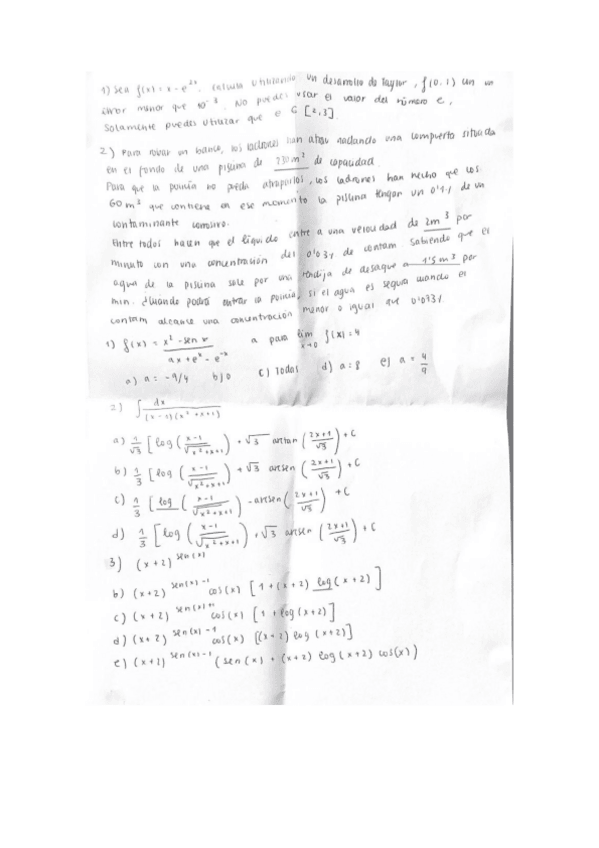 1) Sea f(x) = x - e^2x. Calcula utilizando un desarrollo de Taylor, f(0.1) con un
error menor que 10^-3. No puedes usar el valor del número e,
solamente puedes utilizar que e ∈ [2,3].
2) Para robar un banco, los ladrones han atrav nadando una compuerta situada
en el fondo de una piscina de 230 m^3 de capacidad.
Para que la policía no pueda atraparlos, los ladrones han hecho que los
60 m^3 que contiene en ese momento la piscina tengan un 0'1% de un
contaminante corrosivo.
Entre todos hacen que el líquido entre a una velocidad de 2m^3 por
minuto con una concentración del 0'03% de contam sabiendo que el
agua de la piscina sale por una rendija de desague a 1'5 m^3 por
min. ¿Cuando podrá entrar la policía, si el agua es segura cuando el
contam alcance una concentración menor o igual que 0'033%.
1) f(x) = (x^2 - sen x)/(ax + e^x - e^-x) a para lim x→0 f(x) = 4
a) a = -9/4 b) 0 c) Todas d) a = 8 e) a = 4/9
2) ∫ dx/((x-1)(x^2+x+1))
a) 1/√3 [log((x-1)/√(x^2+x+1)) + √3 arctan((2x+1)/√3) + C
b) 1/3 [log((x-1)/√(x^2+x+1)) + √3 arcsen((2x+1)/√3) + C
c) 1/3 [log((x-1)/√(x^2+x+1)) - arcsen((2x+1)/√3) + C
d) 1/3 [log((x-1)/√(x^2+x+1)) + √3 arcsen((2x+1)/√3) + C
3) (x+2)^sen(x)
b) (x+2)^sen(x)-1 cos(x) [1 + (x+2) log(x+2)]
c) (x+2)^sen(x) cos(x) [1 + log(x+2)]
d) (x+2)^sen(x)-1 cos(x) [(x+2) log(x+2)]
e) (x+2)^sen(x)-1 (sen(x) + (x+2) log(x+2) cos(x))